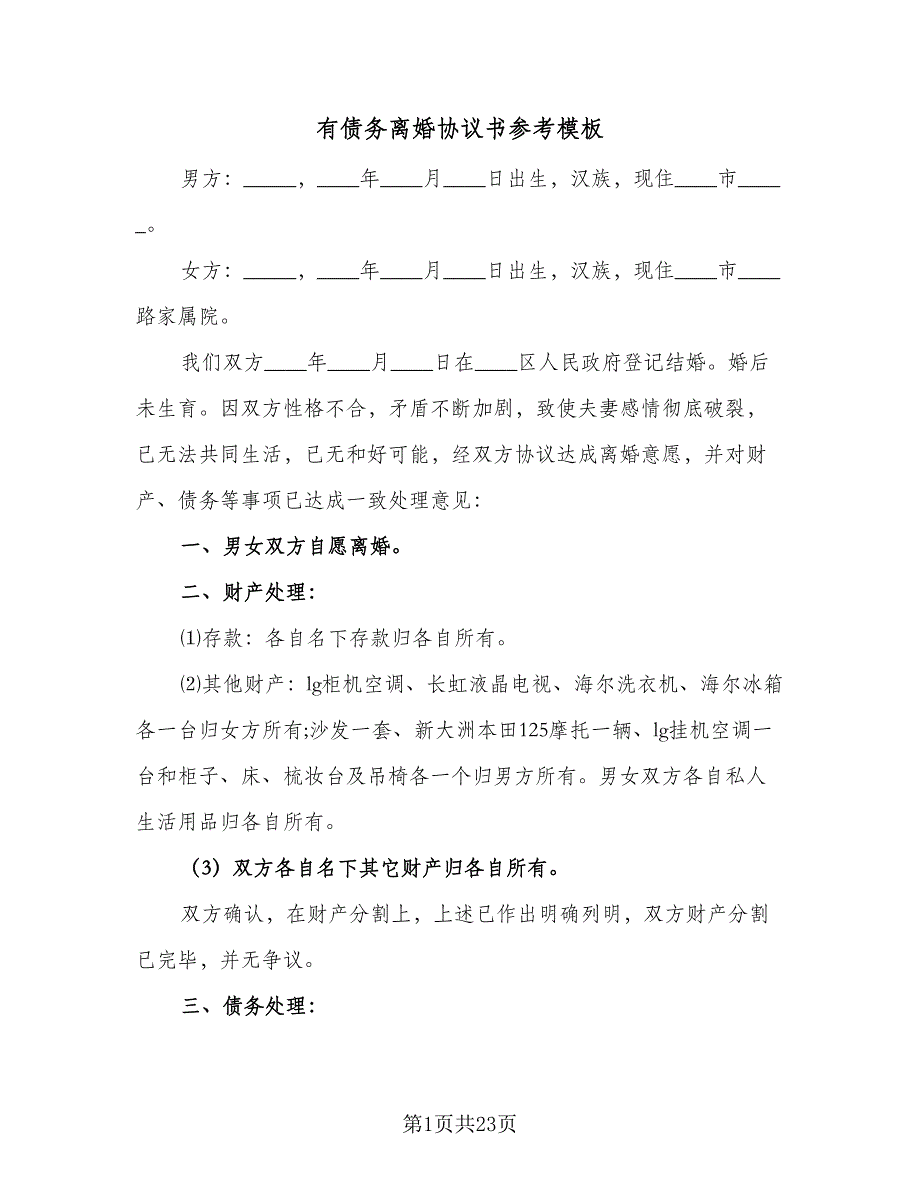 有债务离婚协议书参考模板
男方：_____，____年____月____日出生，汉族，现住____市____
_。
女方：_____，____年____月____日出生，汉族，现住____市____
路家属院。
我们双方____年____月____日在____区人民政府登记结婚。婚后
未生育。因双方性格不合，矛盾不断加剧，致使夫妻感情彻底破裂，
已无法共同生活，已无和好可能，经双方协议达成离婚意愿，并对财
产、债务等事项已达成一致处理意见：
一、男女双方自愿离婚。
二、财产处理：
⑴存款：各自名下存款归各自所有。
⑵其他财产：lg柜机空调、长虹液晶电视、海尔洗衣机、海尔冰箱
各一台归女方所有;沙发一套、新大洲本田125摩托一辆、lg挂机空调一
台和柜子、床、梳妆台及吊椅各一个归男方所有。男女双方各自私人
生活用品归各自所有。
（3）双方各自名下其它财产归各自所有。
双方确认，在财产分割上，上述已作出明确列明，双方财产分割
已完毕，并无争议。
三、债务处理：
第1页共23页